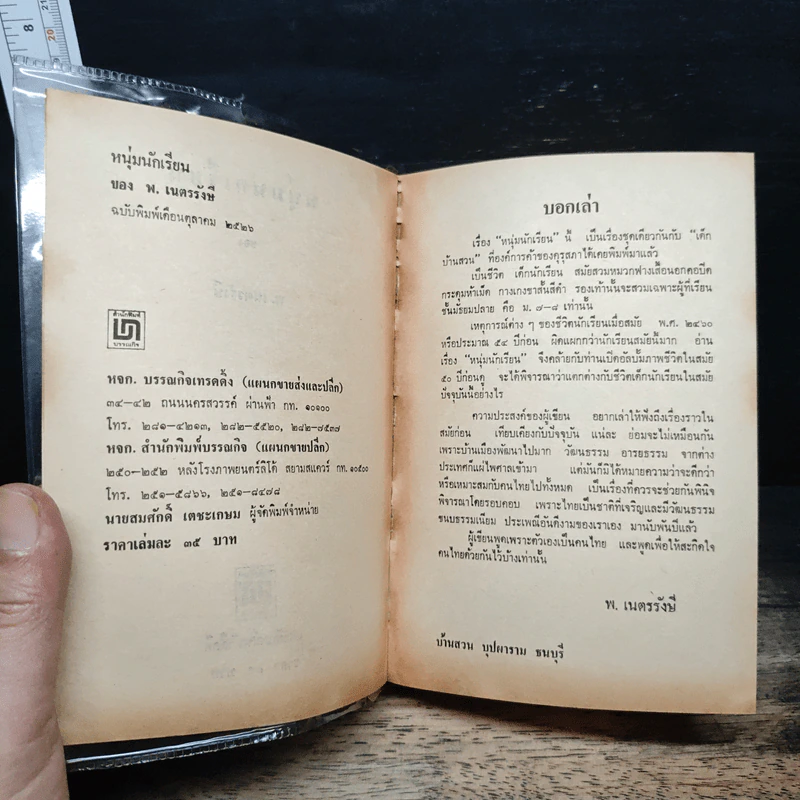 หนุ่มนักเรียน
ของ พ. เนตรรังษี
ฉบับพิมพ์เดือนตุลาคม ๒๕๒๖
สำนักพิมพ์
บรรณกิจ
หจก. บรรณกิจเทรดดิ้ง (แผนกขายส่งและปลีก)
๓๔-๔๒ ถนนนครสวรรค์ ผ่านฟ้า กท. ๑๐๑๐๐
โทร. ๒๘๑-๔๒๑๓, ๒๘๒-๕๕๒๐, ๒๘๒-๗๕๓๗
หจก. สำนักพิมพ์บรรณกิจ (แผนกขายปลีก)
๒๕๐-๒๕๒ หลังโรงภาพยนตร์ลิโด้ สยามสแควร์ กท. ๑๐๕๐๐
โทร. ๒๕๑-๕๘๖๖, ๒๕๑-๘๔๗๘
นายสมศักดิ์ เตชะเกษม ผู้จัดพิมพ์จำหน่าย
ราคาเล่มละ ๓๕ บาท
บอกเล่า
เรื่อง "หนุ่มนักเรียน" นี้ เป็นเรื่องชุดเดียวกันกับ "เด็ก
บ้านสวน" ที่องค์การค้าของคุรุสภาได้เคยพิมพ์มาแล้ว
เป็นชีวิต เด็กนักเรียน สมัยสวมหมวกฟางเสื้อนอกคอปิด
กระดุมห้าเม็ด กางเกงขาสั้นสีดำ รองเท้านั้นจะสวมเฉพาะผู้ที่เรียน
ชั้นมัธยมปลาย คือ ม. ๗-๘ เท่านั้น
เหตุการณ์ต่าง ๆ ของชีวิตนักเรียนเมื่อสมัย พ.ศ. ๒๔๖๐
หรือประมาณ ๕๔ ปีก่อน ผิดแผกกว่านักเรียนสมัยนี้มาก อ่าน
เรื่อง "หนุ่มนักเรียน" จึงคล้ายกับท่านเปิดอัลบั้มภาพชีวิตในสมัย
๕๐ ปีก่อนดู จะได้พิจารณาว่าแตกต่างกับชีวิตเด็กนักเรียนในสมัย
ปัจจุบันนี้อย่างไร
ความประสงค์ของผู้เขียน อยากเล่าให้ฟังถึงเรื่องราวใน
สมัยก่อน เทียบเคียงกับปัจจุบัน แน่ละ ย่อมจะไม่เหมือนกัน
เพราะบ้านเมืองพัฒนาไปมาก วัฒนธรรม อารยธรรม จากต่าง
ประเทศก็แผ่ไพศาลเข้ามา แต่มันก็มิได้หมายความว่าจะดีกว่า
หรือเหมาะสมกับคนไทยไปทั้งหมด เป็นเรื่องที่ควรจะช่วยกันพินิจ
พิจารณาโดยรอบคอบ เพราะไทยเป็นชาติที่เจริญและมีวัฒนธรรม
ขนบธรรมเนียม ประเพณีอันดีงามของเราเอง มานับพันปีแล้ว
ผู้เขียนพูดเพราะตัวเองเป็นคนไทย และพูดเพื่อให้สะกิดใจ
คนไทยด้วยกันไว้บ้างเท่านั้น
พ. เนตรรังษี
บ้านสวน บุปผาราม ธนบุรี
8
20
21